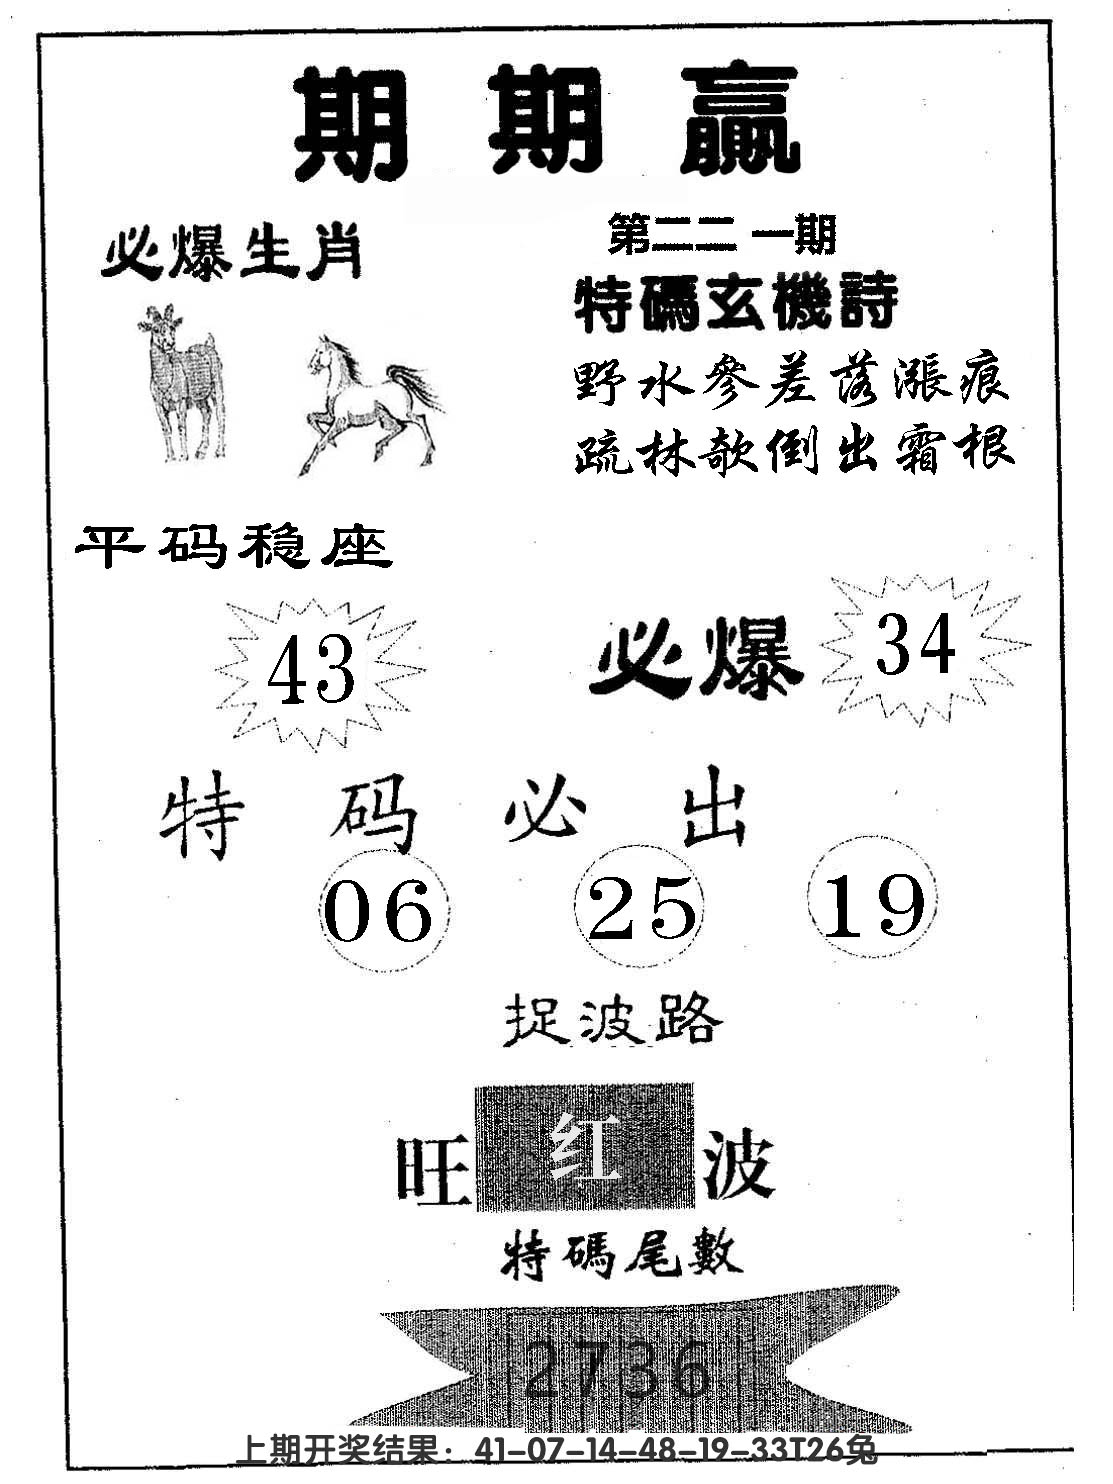 期期贏
必爆生肖
第二二一期
特碼玄機詩
野水參差落漲痕
疏林欹倒出霜根
平码稳座
43
必爆
34
特码必出
06 25 19
捉波路
旺红波
特碼尾數
2736
上期开奖结果：41-07-14-48-19-33T26兔